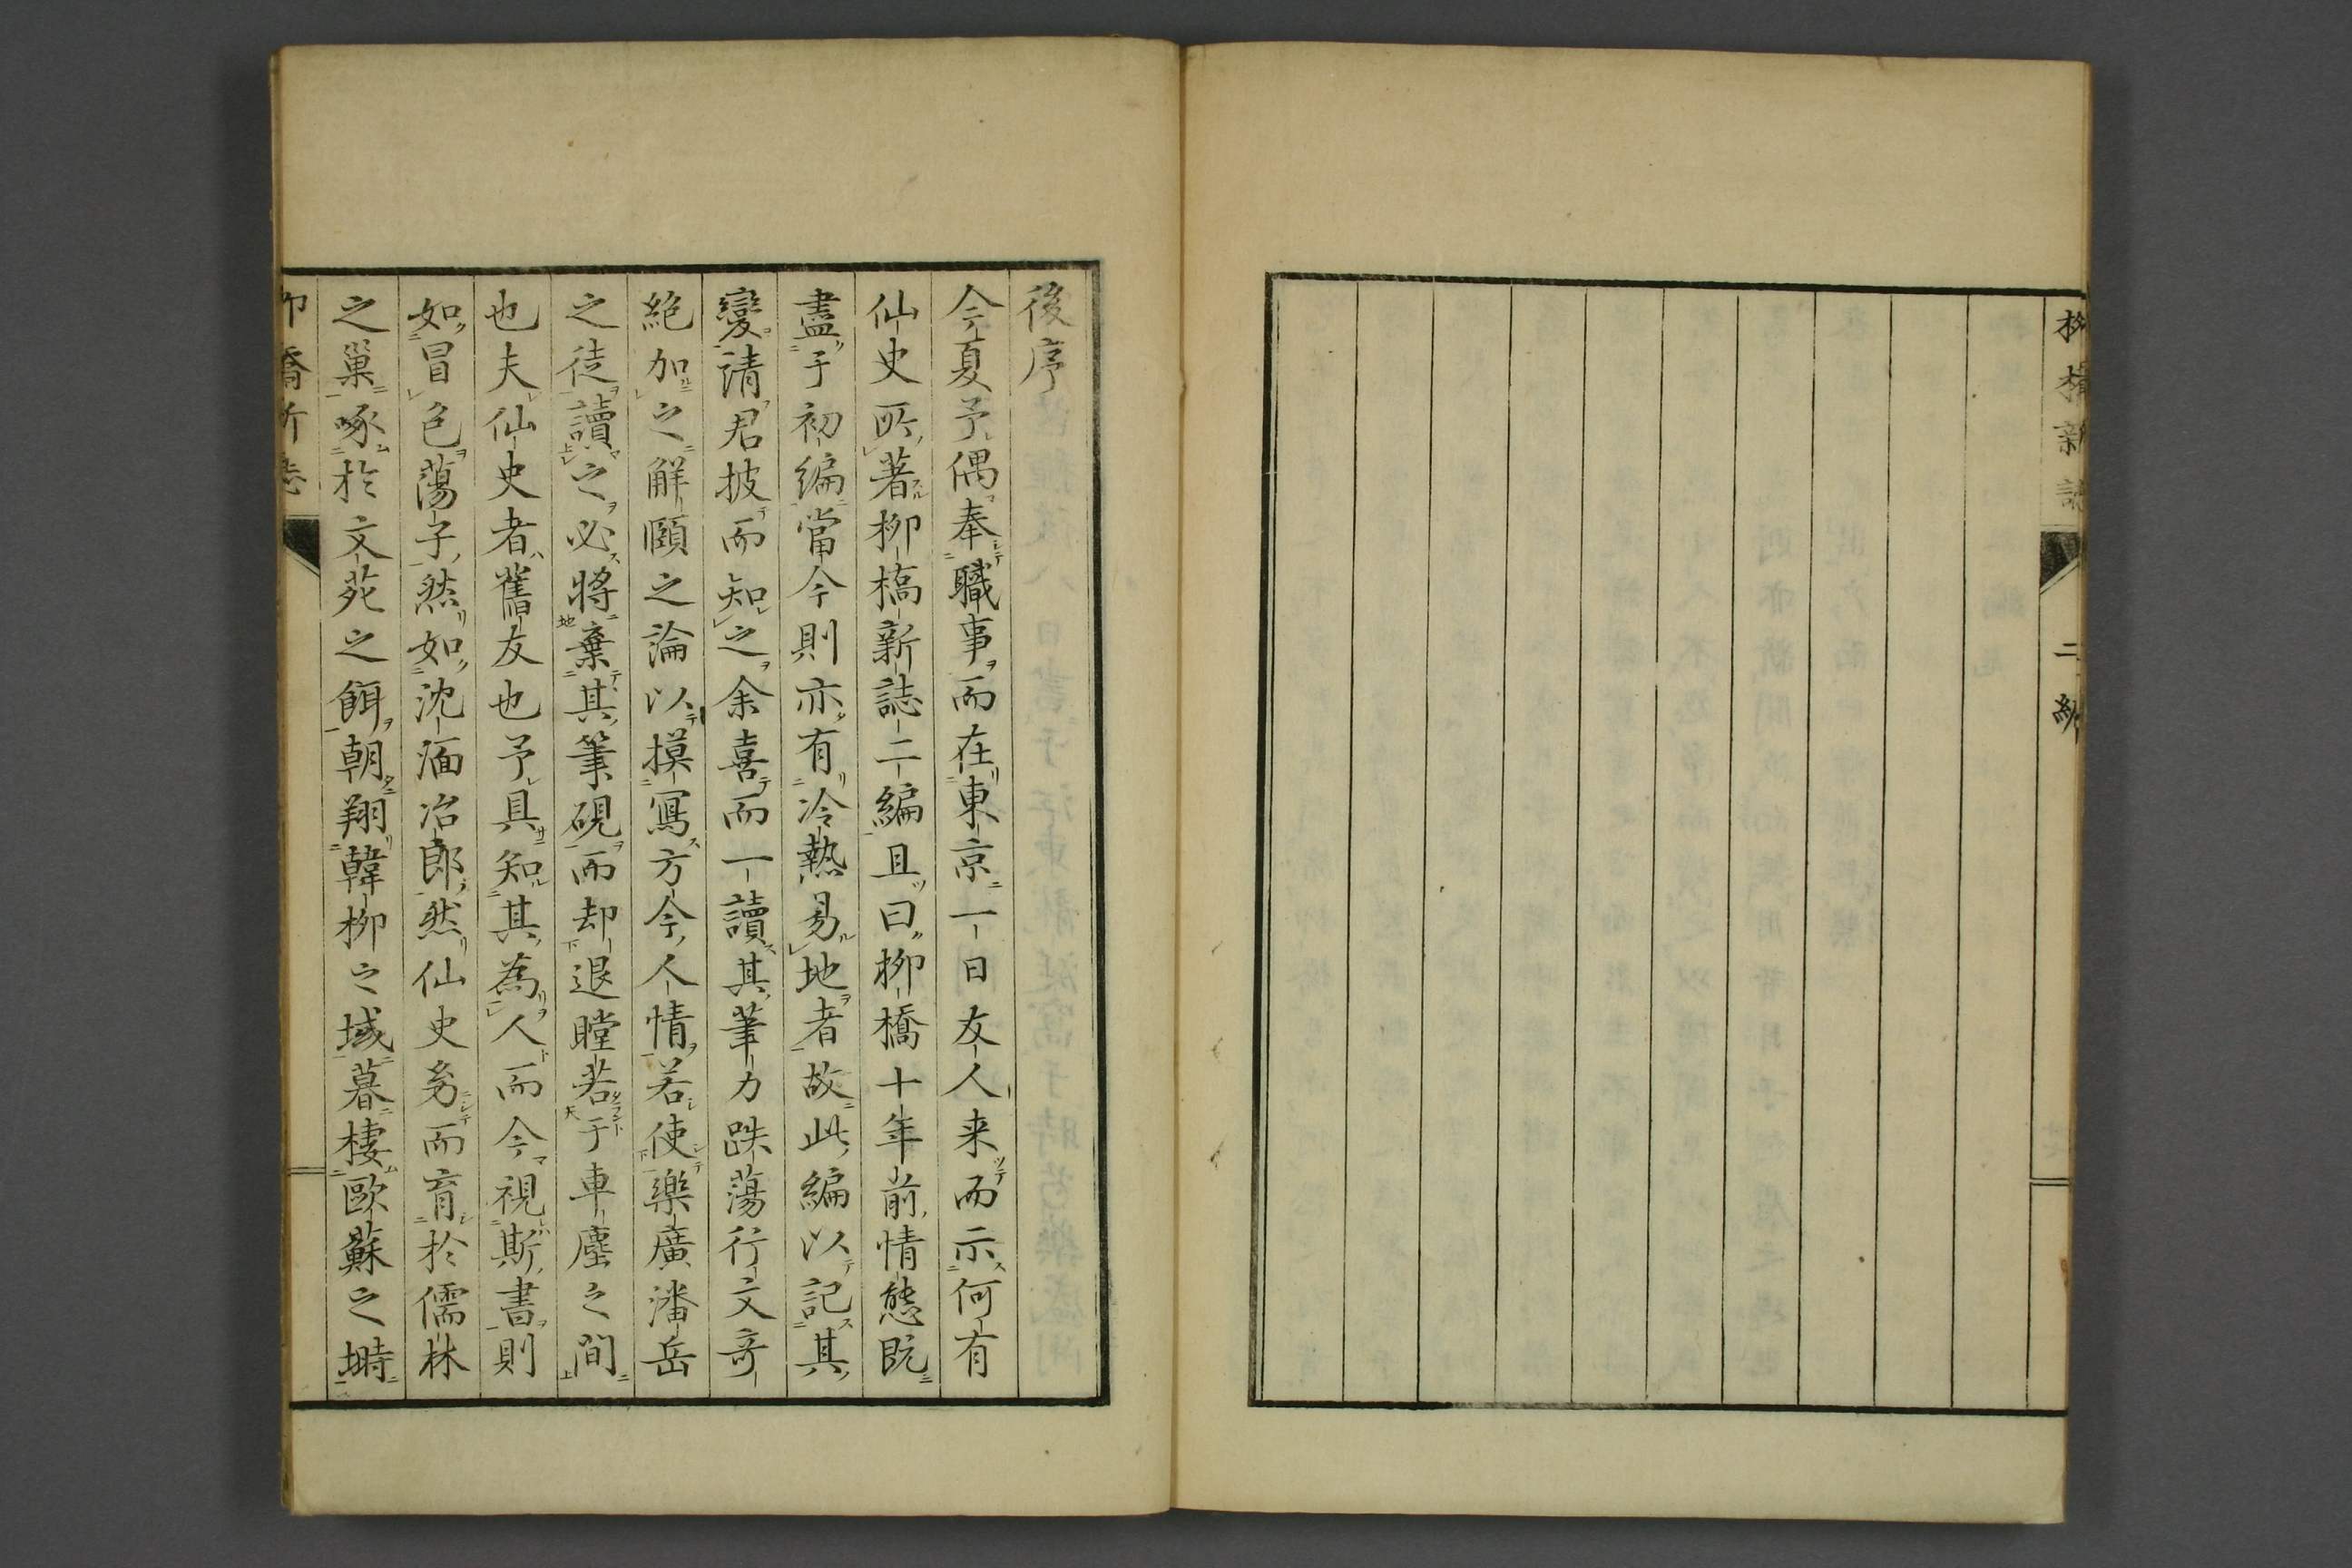 柳橋新誌 二編
後序
今夏予偶奉職事而在東京一日友人来而示何有
仙史所著柳橋新誌二編且曰柳橋十年前情態既
盡于初編當今則亦有冷熱易地者故此編以記其
變請君披而知之余喜而一讀其筆力跌蕩行文奇
絶加之解頤之論以摸寫方今人情若使樂廣潘岳
之徒讀之必將棄其筆硯而却退瞠若于車塵之間
也夫仙史者舊友也予具知其為人而今視斯書則
如冒色蕩子然如沈湎冶郎然仙史㓜而育於儒林
之巢啄於文苑之餌朝翔韓柳之域暮棲歐蘇之塒
柳橋新誌